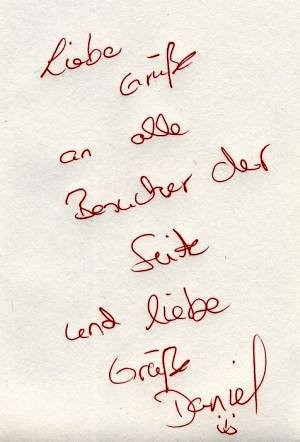 Liebe
Grüße
an alle
Besucher der
Seite
und liebe
Grüße
Daniel